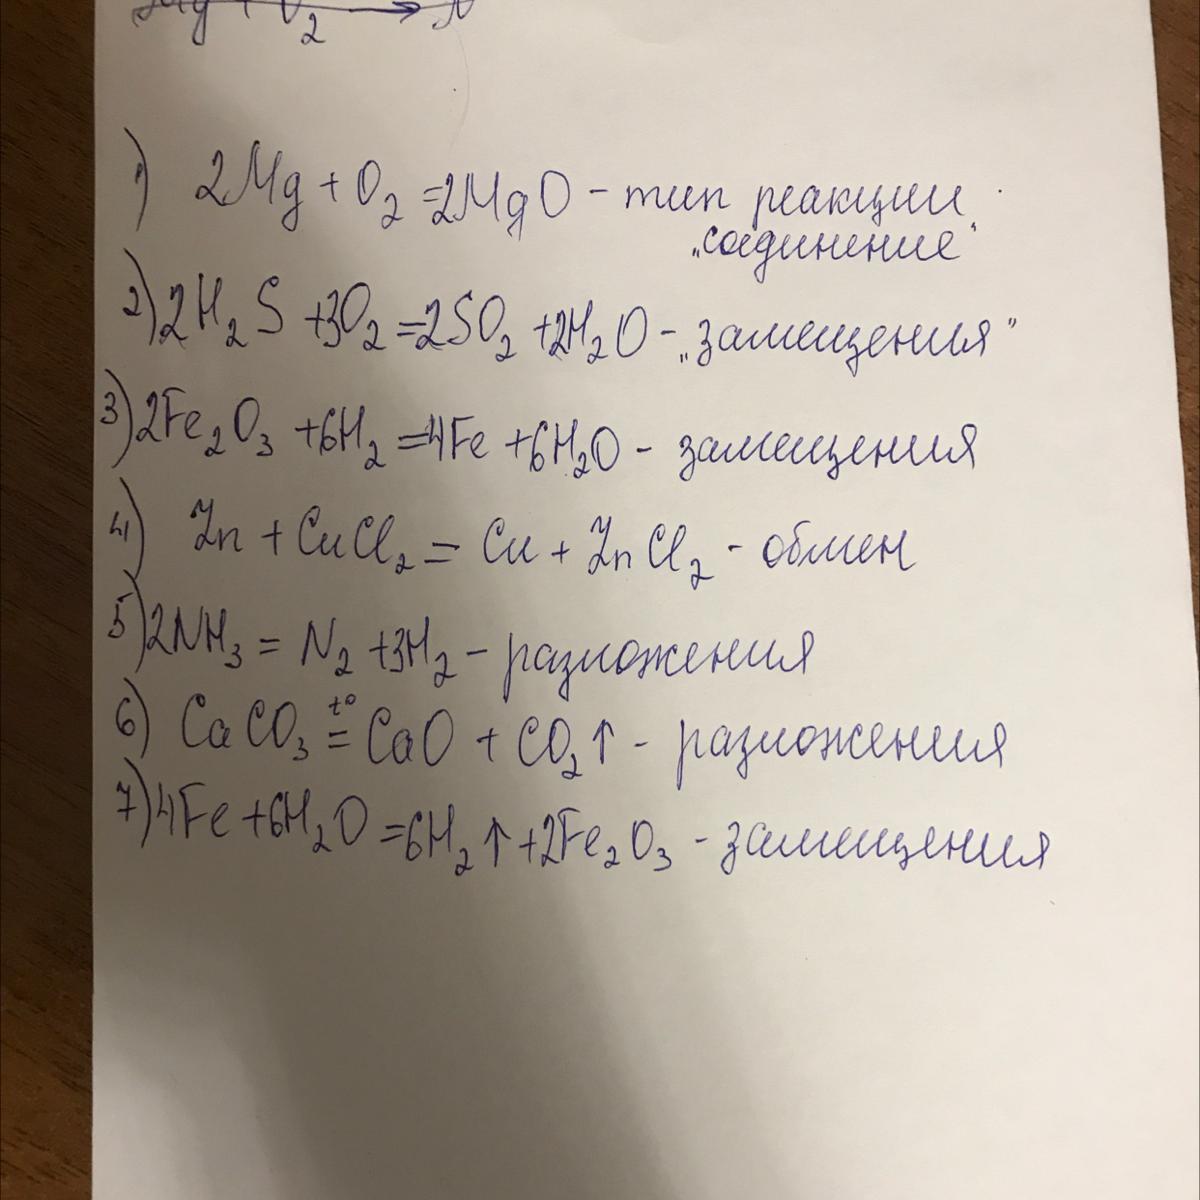 Mg + O₂ → N
1) 2Mg + O₂ = 2MgO - тип реакции
„соединение"
2) 2H₂S + 3O₂ = 2SO₂ + 2H₂O - „замещения"
3) 2Fe₂O₃ + 6H₂ = 4Fe + 6H₂O - замещения
4) Zn + CuCl₂ = Cu + ZnCl₂ - обмен
5) 2NH₃ = N₂ + 3H₂ - разложения
6) CaCO₃ t° = CaO + CO₂↑ - разложения
7) 4Fe + 6H₂O = 6H₂↑ + 2Fe₂O₃ - замещения